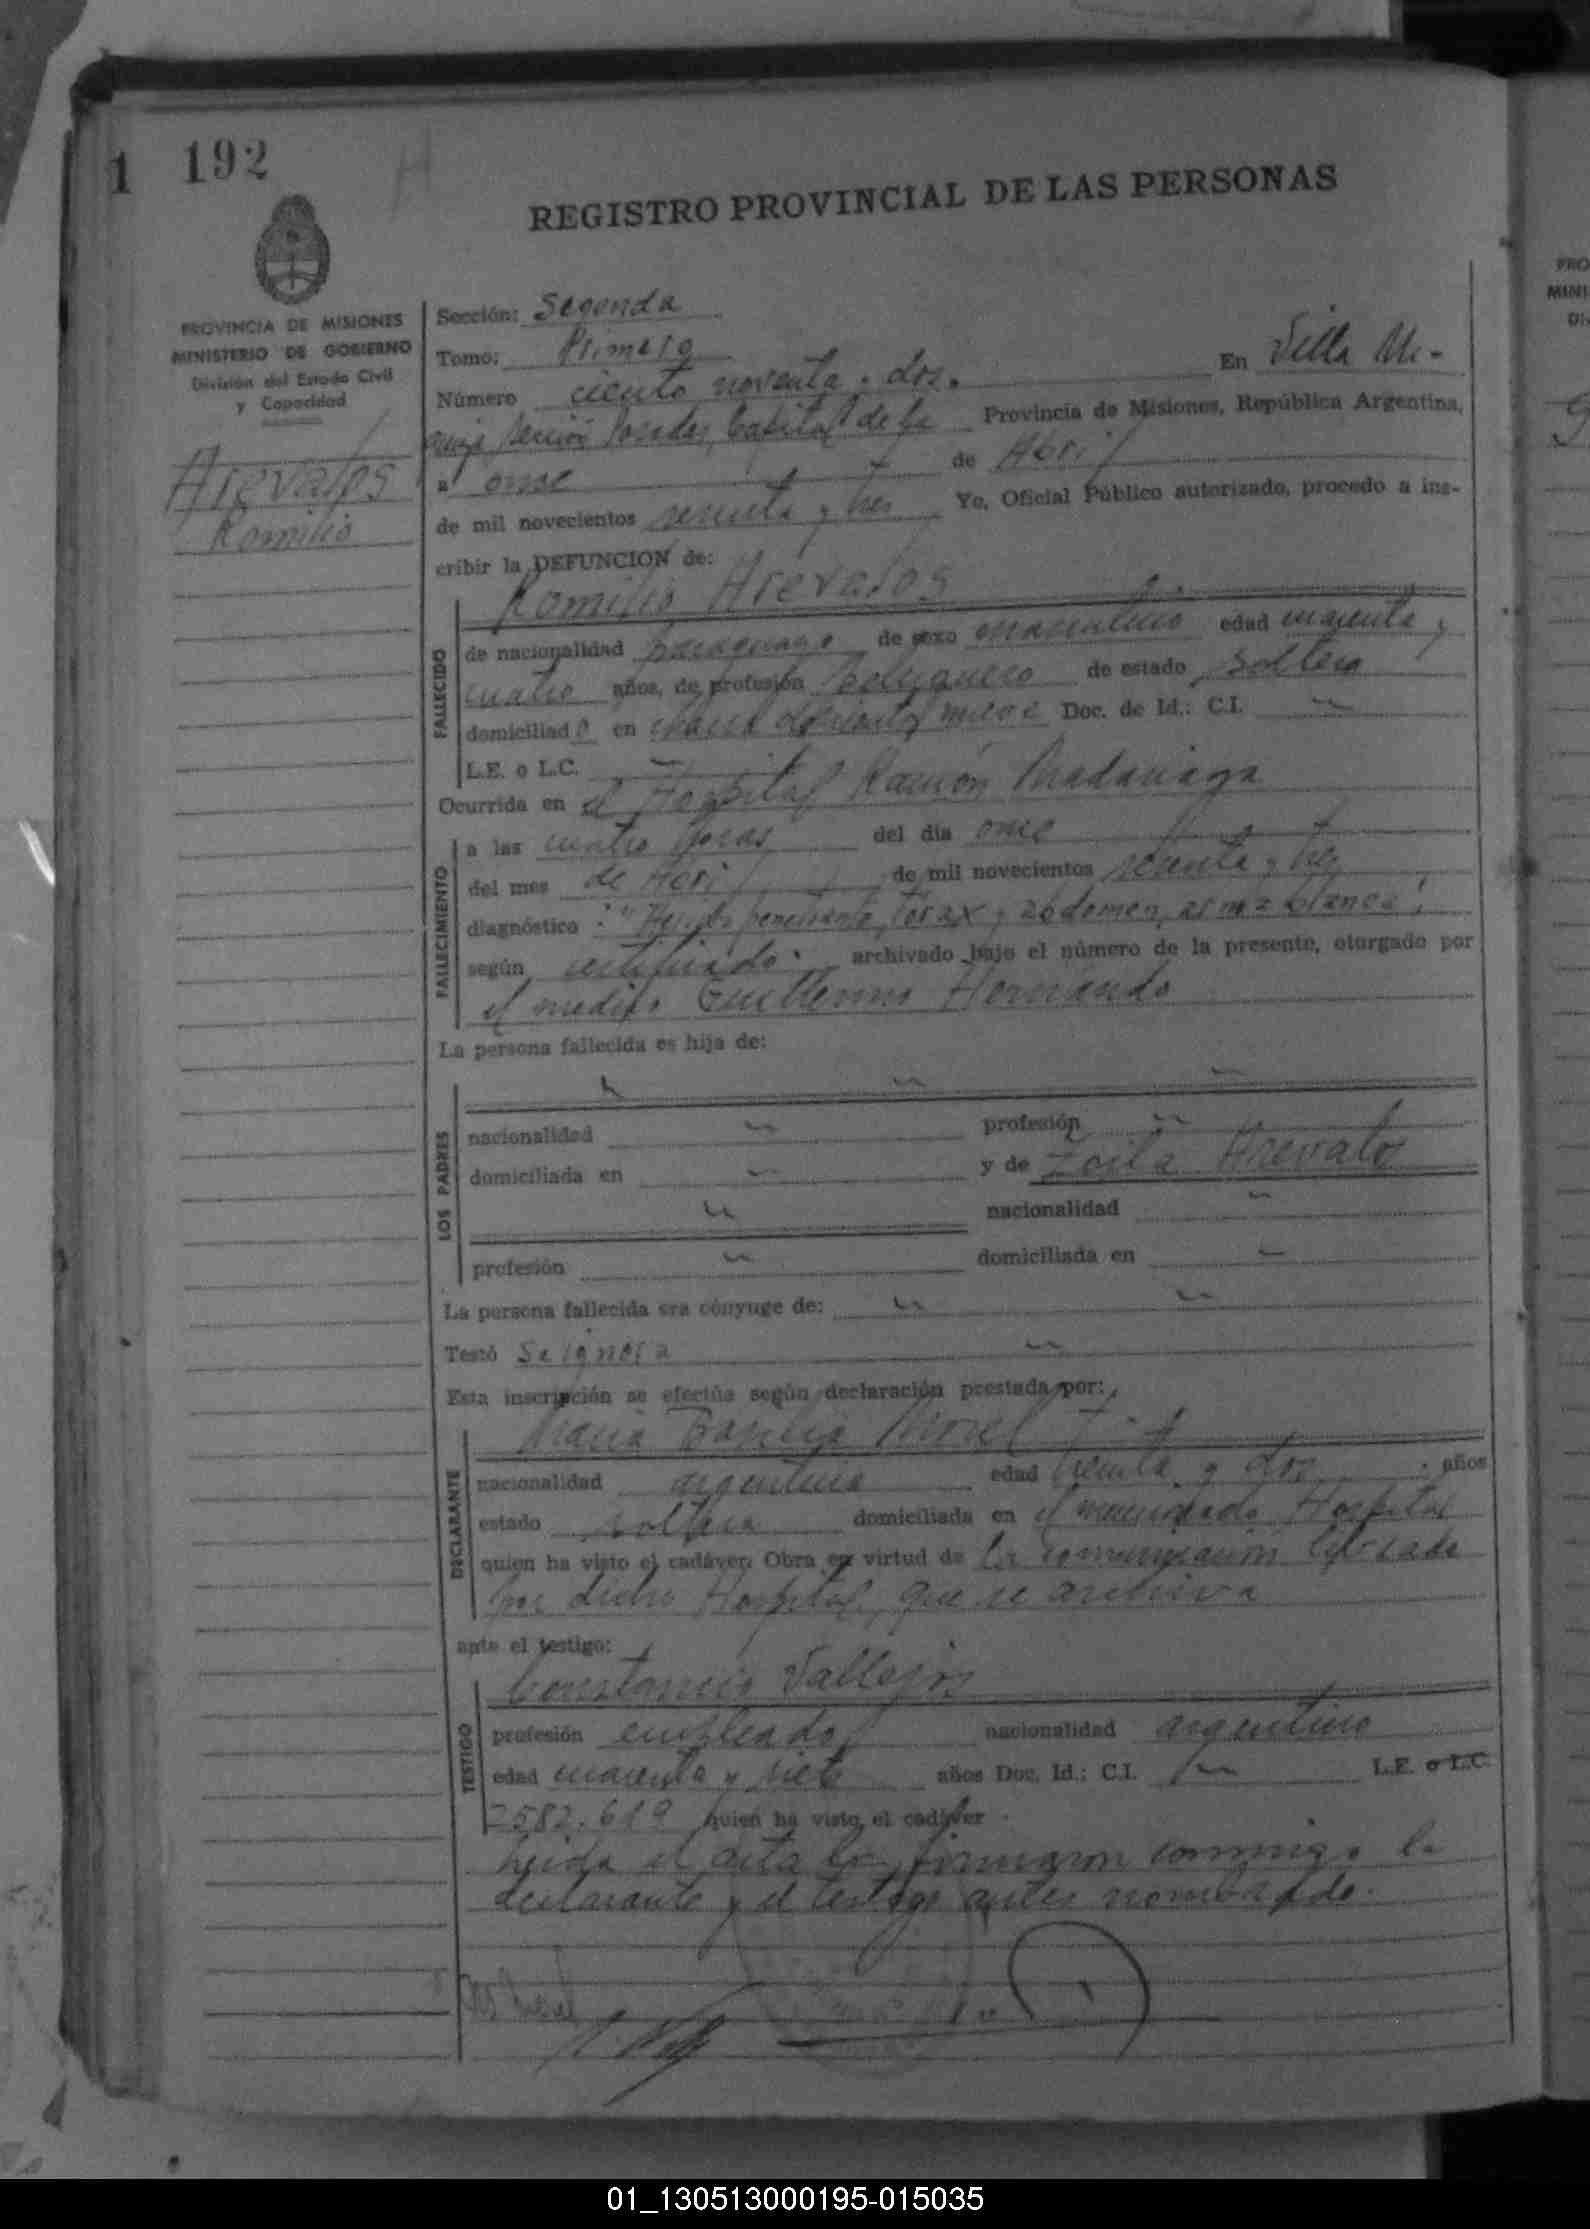 1 192
H
REGISTRO PROVINCIAL DE LAS PERSONAS
PROVINCIA DE MISIONES
MINISTERIO DE GOBIERNO
División del Estado Civil
y Capacidad
Arevalos
Romilio
Sección: Segunda
Tomo: Primero
Número ciento noventa y dos. En Villa Ur-
quiza sección Posadas, Capital de la Provincia de Misiones, República Argentina,
a once de Abril
de mil novecientos sesenta y tres Yo, Oficial Público autorizado, procedo a ins-
cribir la DEFUNCION de:
Romilio Arevalos
FALLECIDO
de nacionalidad paraguayo de sexo masculino edad cuarenta y
cuatro años, de profesión Peluquero de estado soltero
domiciliado en chacra Doc. de Id.: C.I.
L.E. o L.C.
Ocurrida en el Hospital Ramón Madariaga
FALLECIMIENTO
a las cuatro horas del día once
del mes de Abril de mil novecientos sesenta y tres
diagnóstico : "Herida penetrante, torax y abdomen, arma blanca"
según certificado archivado bajo el número de la presente, otorgado por
el medico Guillermo Hernando
La persona fallecida es hija de:
LOS PADRES
nacionalidad profesión
domiciliada en y de Zoila Arevalos
nacionalidad
profesión domiciliada en
La persona fallecida era cónyuge de:
Testó Se ignora
Esta inscripción se efectúa según declaración prestada por:
DECLARANTE
Maria Morel
nacionalidad argentina edad treinta y dos años
estado soltera domiciliada en el mencionado Hospital
quien ha visto el cadáver. Obra en virtud de la comunicación
por dicho Hospital, que se archiva
ante el testigo:
Constancio Vallejos
TESTIGO
profesión empleado nacionalidad argentino
edad cuarenta y siete años Doc. Id.: C.I. L.E. o L.C.
2582.619 quien ha visto el cadáver
Leida el acta la firmaron conmigo la
declarante y el testigo antes nombrado.
01_130513000195-015035